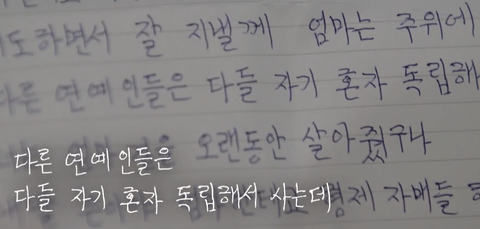 도하면서 잘 지낼께 엄마는 주위에
다른 연예인들은 다들 자기 혼자 독립해
오랜동안 살아줬구나
다른 연예인들은
다들 자기 혼자 독립해서 사는데
형제 자매들